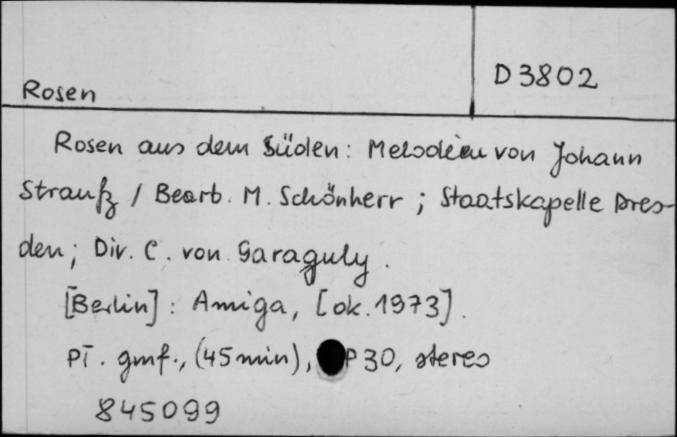 Rosen
D 3802
Rosen aus dem Süden: Melodien von Johann
Strauß / Bearb. M. Schönherr ; Staatskapelle Dres-
den ; Div. C. von Garaguly.
[Berlin] : Amiga, [ok. 1973].
gmf., (45 min), P 30, stereo
845099